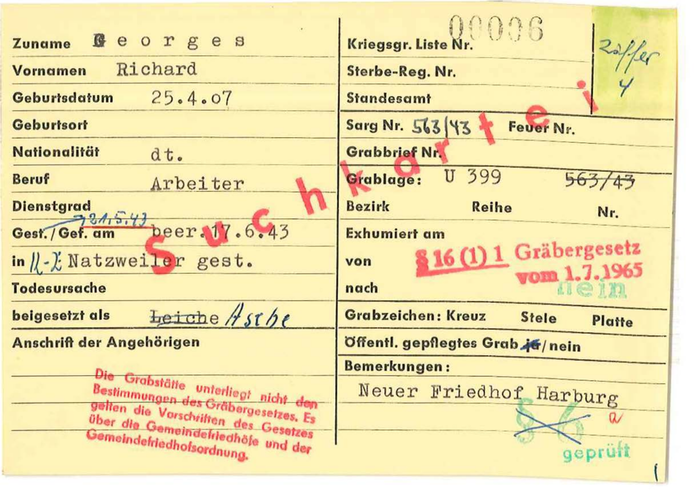 00006
Zuname Georges
Vornamen Richard
Geburtsdatum 25.4.07
Geburtsort
Nationalität dt.
Beruf Arbeiter
Dienstgrad
21.5.43
Gest./Gef. am beer.17.6.43
in K-Z Natzweiler gest.
Todesursache
beigesetzt als Leiche Asche
Anschrift der Angehörigen
Die Grabstätte unterliegt nicht den
Bestimmungen des Gräbergesetzes. Es
gelten die Vorschriften des Gesetzes
über die Gemeindefriedhöfe und der
Gemeindefriedhofsordnung.
Suchkartei
Kriegsgr. Liste Nr.
4
Sterbe-Reg. Nr.
Standesamt
Sarg Nr. 563/43 Feuer Nr.
Grabbrief Nr.
Grablage: U 399 563/43
Bezirk Reihe Nr.
Exhumiert am
von
§ 16 (1) 1 Gräbergesetz
vom 1.7.1965
nach nein
Grabzeichen: Kreuz Stele Platte
Öffentl. gepflegtes Grab ja/nein
Bemerkungen:
Neuer Friedhof Harburg
§ 6 a
geprüft